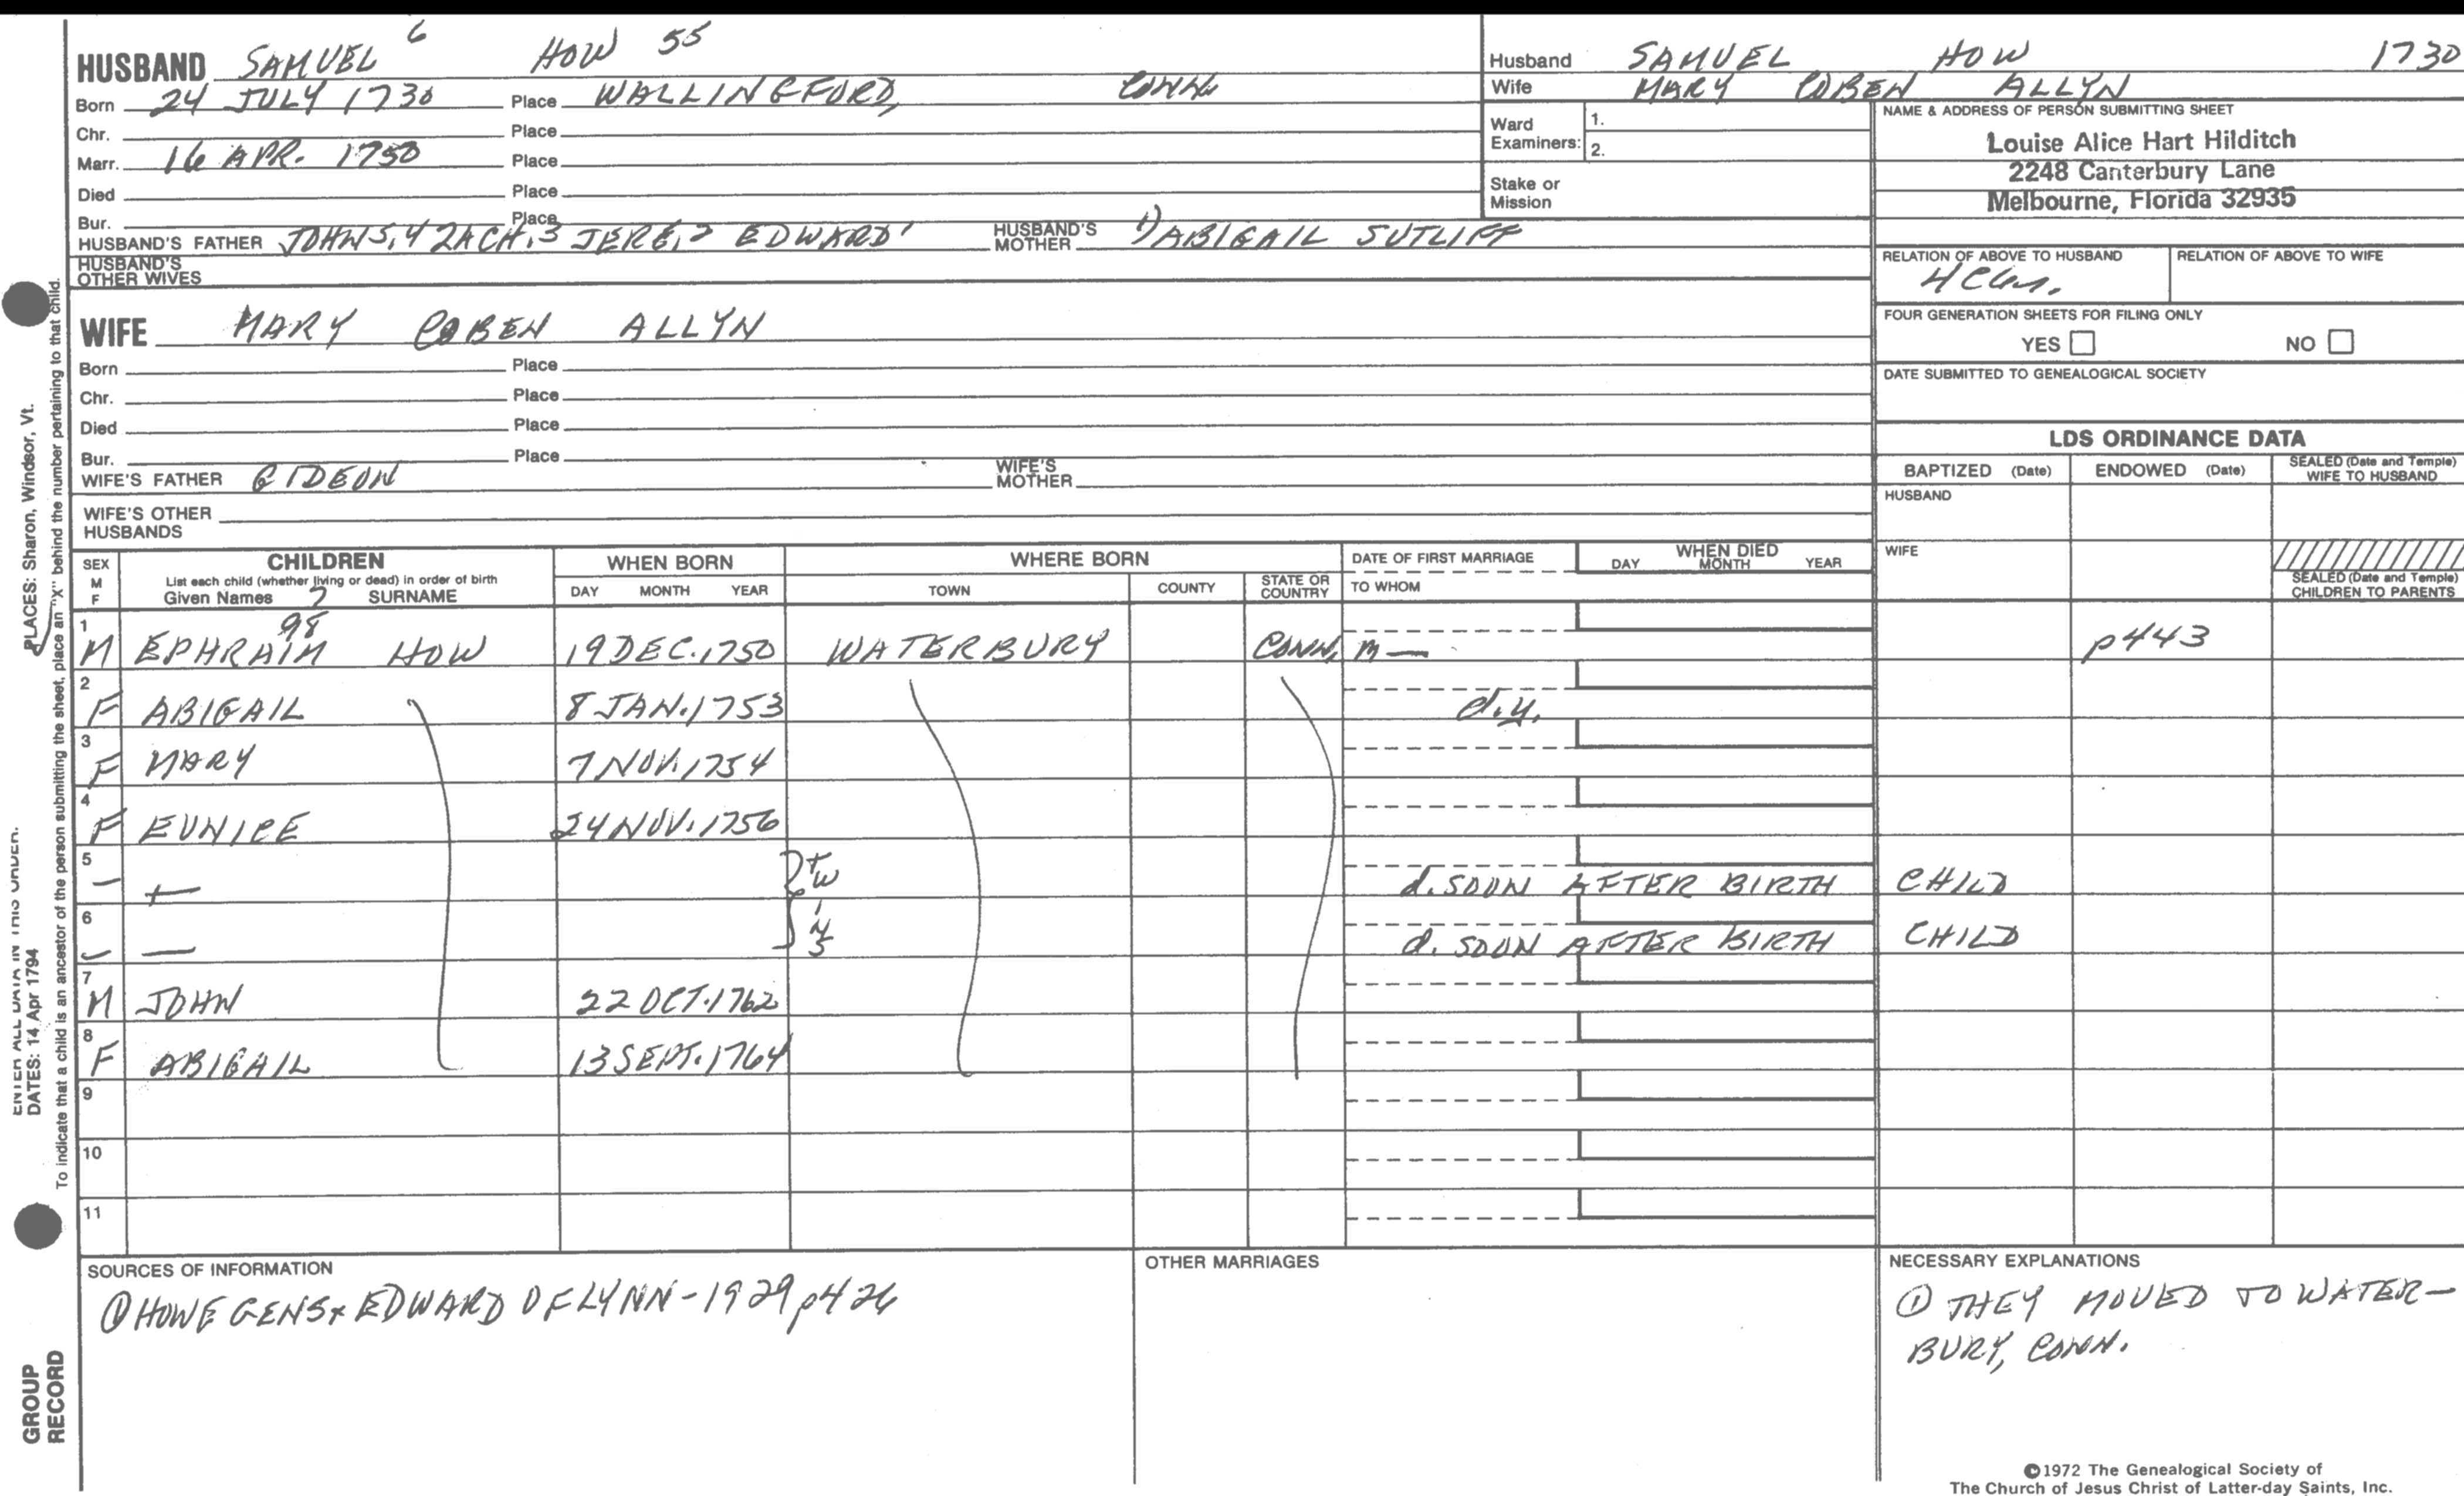 HUSBAND SAMUEL 6 HOW 55
Born 24 JULY 1730 Place WALLINGFORD, CONN.
Chr. Place
Marr. 16 APR. 1750 Place
Died Place
Bur. Place
HUSBAND'S FATHER JOHN5,4 ZACH,3 JERE,2 EDWARD1 HUSBAND'S MOTHER 1) ABIGAIL SUTLIFF
HUSBAND'S OTHER WIVES
WIFE MARY COBEN ALLYN
Born Place
Chr. Place
Died Place
Bur. Place
WIFE'S FATHER GIDEON WIFE'S MOTHER
WIFE'S OTHER HUSBANDS
Husband SAMUEL HOW 1730
Wife MARY COBEN ALLYN
Ward Examiners: 1.
2.
Stake or Mission
NAME & ADDRESS OF PERSON SUBMITTING SHEET
Louise Alice Hart Hilditch
2248 Canterbury Lane
Melbourne, Florida 32935
RELATION OF ABOVE TO HUSBAND RELATION OF ABOVE TO WIFE
FOUR GENERATION SHEETS FOR FILING ONLY
YES NO
DATE SUBMITTED TO GENEALOGICAL SOCIETY
LDS ORDINANCE DATA
BAPTIZED (Date) ENDOWED (Date) SEALED (Date and Temple) WIFE TO HUSBAND
HUSBAND
WIFE
SEALED (Date and Temple) CHILDREN TO PARENTS
SEX M F CHILDREN WHEN BORN WHERE BORN DATE OF FIRST MARRIAGE WHEN DIED
List each child (whether living or dead) in order of birth
Given Names 7 SURNAME DAY MONTH YEAR TOWN COUNTY STATE OR COUNTRY TO WHOM DAY MONTH YEAR
1 M EPHRAIM 98 HOW 19 DEC. 1750 WATERBURY CONN. m — p443
2 F ABIGAIL 8 JAN. 1753 d.y.
3 F MARY 7 NOV. 1754
4 F EUNICE 24 NOV. 1756
5 — — tw d. SOON AFTER BIRTH CHILD
6 — — ins d. SOON AFTER BIRTH CHILD
7 M JOHN 22 OCT. 1762
8 F ABIGAIL 13 SEPT. 1764
9
10
11
SOURCES OF INFORMATION
① HOWE GENS * EDWARD OF LYNN - 1929 p426
OTHER MARRIAGES
NECESSARY EXPLANATIONS
① THEY MOVED TO WATER-
BURY, CONN.
©1972 The Genealogical Society of
The Church of Jesus Christ of Latter-day Saints, Inc.
PLACES: Sharon, Windsor, Vt.
To indicate that a child is an ancestor of the person submitting the sheet, place an "X" behind the number pertaining to that child.
ENTER ALL DATA IN THIS ORDER:
DATES: 14 Apr 1794
GROUP
RECORD